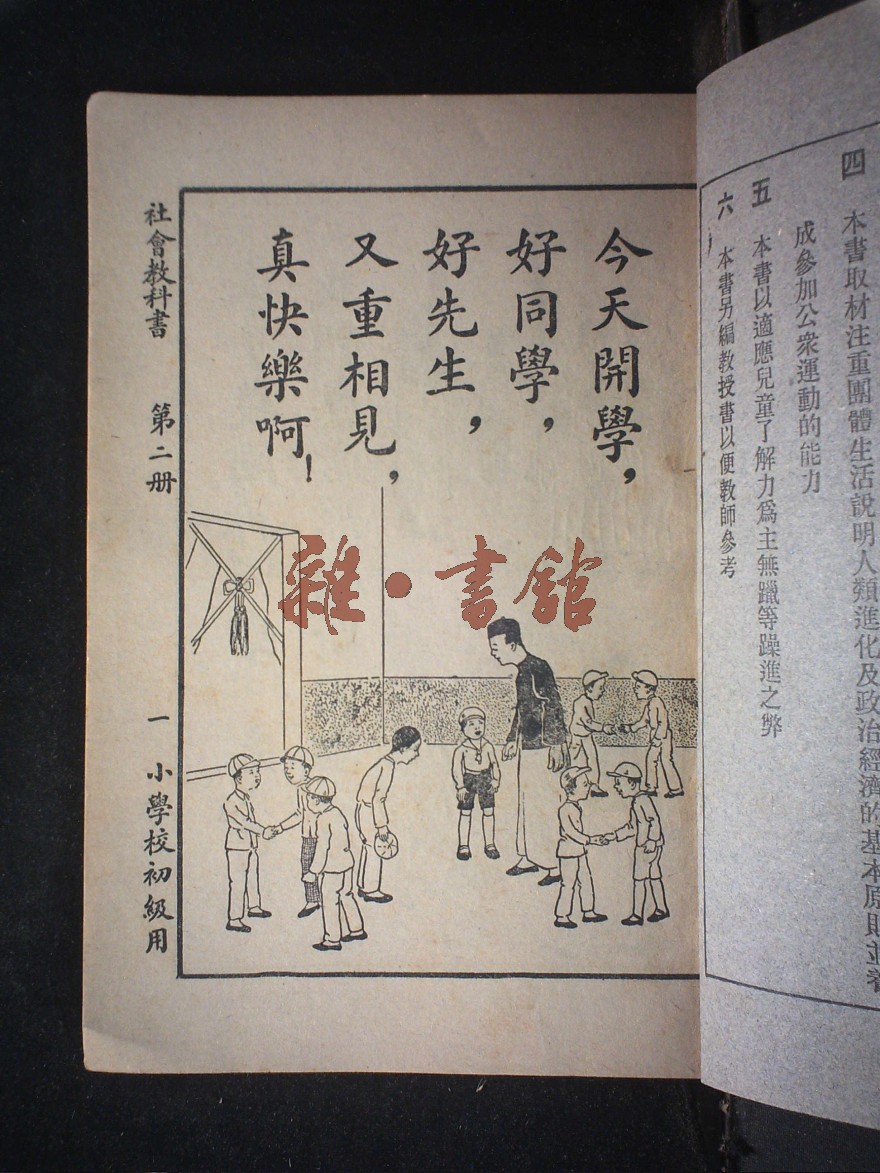 四　本書取材注重團體生活說明人類進化及政治經濟的基本原則並養
成參加公衆運動的能力
五　本書以適應兒童了解力爲主無躐等躁進之弊
六　本書另編教授書以便教師參考
今天開學，
好同學，
好先生，
又重相見，
真快樂啊！
社會教科書　第二册　一　小學校初級用
雜·書館